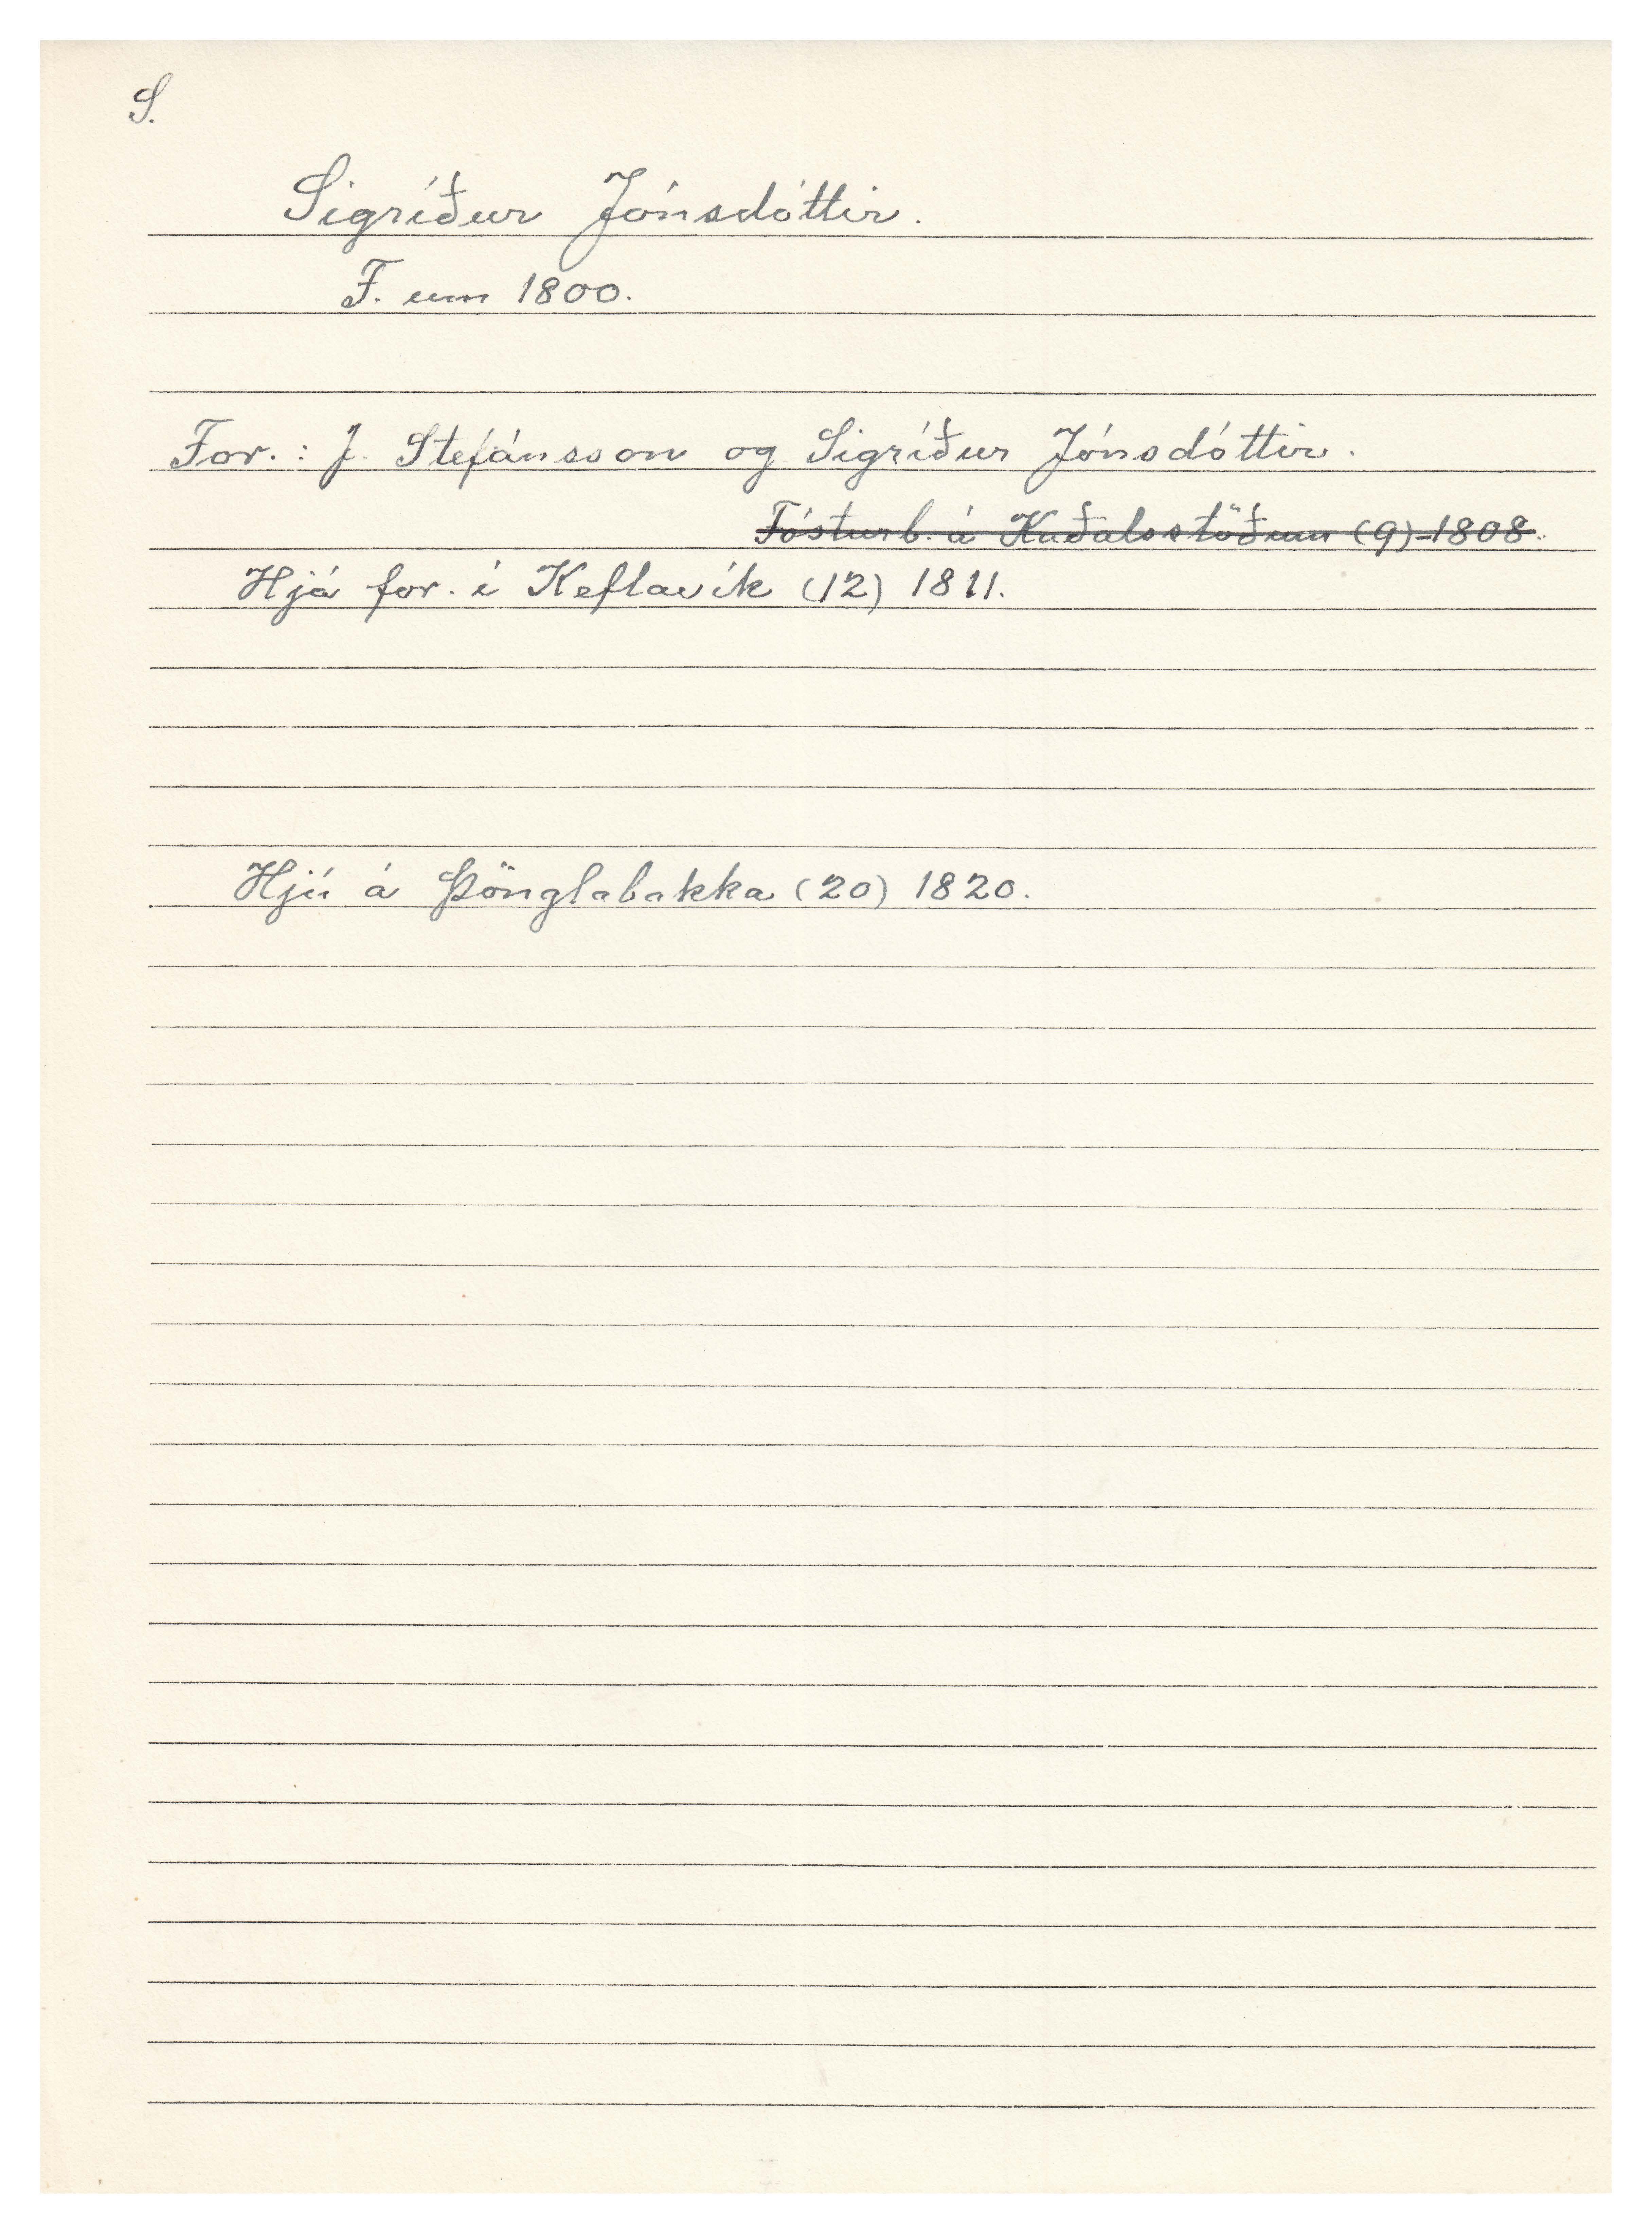 S.
Sigríður Jónsdóttir.
F. um 1800.
For.: J. Stefánsson og Sigríður Jónsdóttir.
Fósturb. á Kaðalsstöðum (9) 1808.
Hjá for. í Keflavík (12) 1811.
Hjú á Þönglabakka (20) 1820.